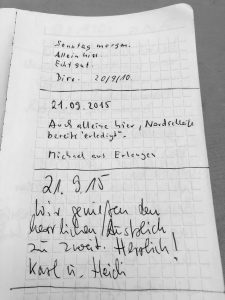 Sonntag morgen.
Allein hier.
Echt gut.
Dirc. 20/9/10.
21.09.2015
Auch alleine hier, Nordschleife
bereits "erledigt".
Michael aus Erlangen
21.9.15
Wir genießen den
herrlichen Ausblick
zu zweit. Herrlich!
Karl u. Heidi